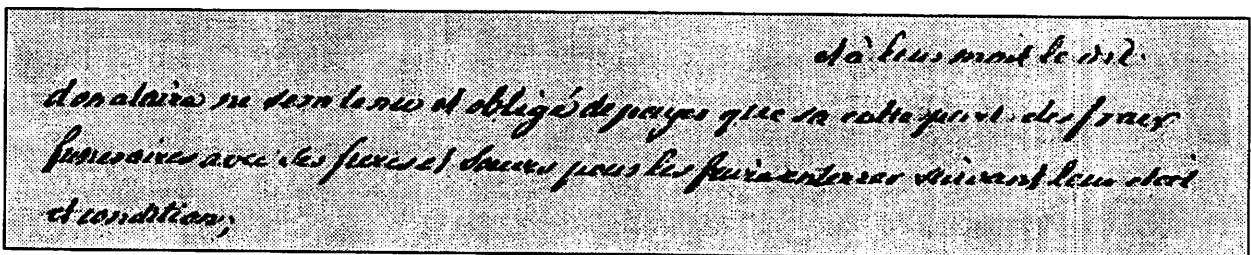 et à leur mort le dit
donataire ne sera tenu et obligé de payer que sa cotte part des frais
funeraires avec ses freres et soeurs pour les faire enterrer suivant leur etat
et condition;